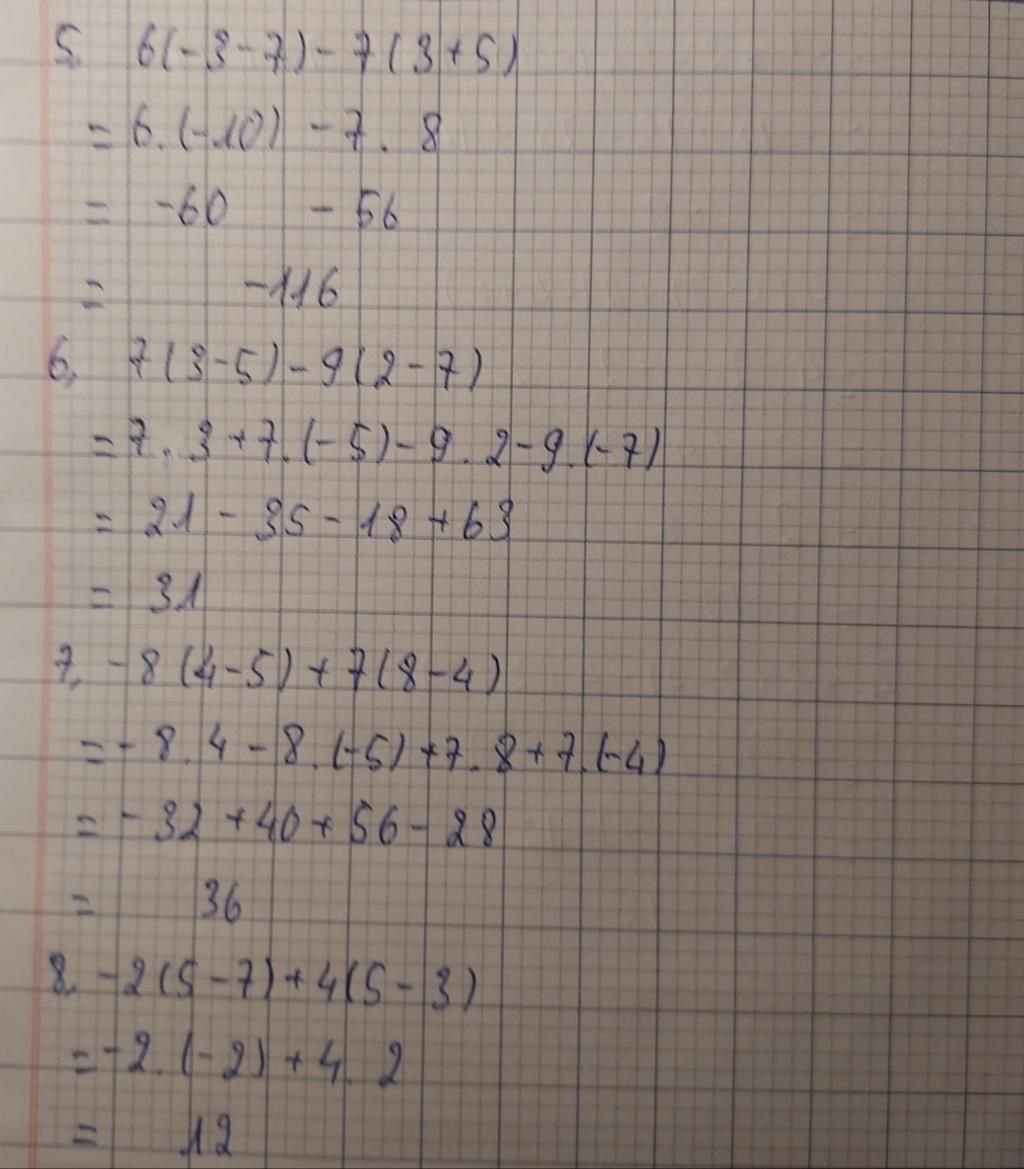 5. 6(-3-7)-7(3+5)
= 6.(-10) -7. 8
= -60 - 56
= -116
6. 7(3-5)-9(2-7)
= 7. 3+7.(-5)-9. 2-9.(-7)
= 21 - 35 - 18 + 63
= 31
7. -8(4-5)+7(8-4)
= -8.4 -8.(-5)+7. 8+7.(-4)
= -32 +40+ 56- 28
= 36
8. -2(5-7)+4(5-3)
= -2.(-2)+4. 2
= 12